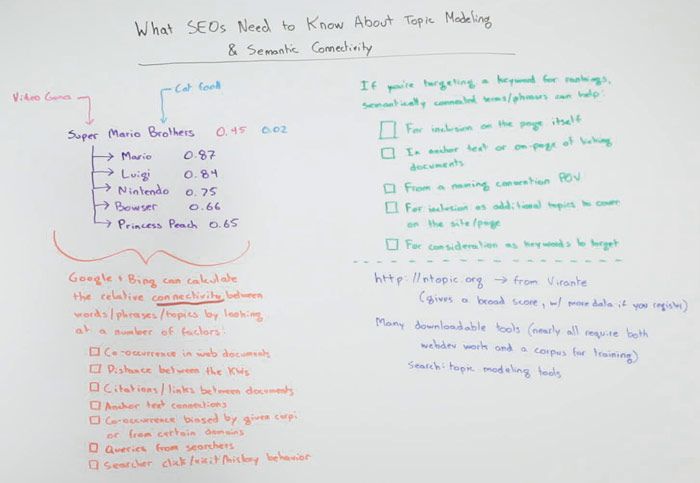 What SEOs Need to Know About Topic Modeling
& Semantic Connectivity
Video Games
Cat Food
Super Mario Brothers 0.45 0.02
Mario 0.87
Luigi 0.84
Nintendo 0.75
Bowser 0.66
Princess Peach 0.65
Google + Bing can calculate
the relative connectivity between
words/phrases/topics by looking
at a number of factors:
Co-occurrence in web documents
Distance between the KWs
Citations/links between documents
Anchor text connections
Co-occurrence biased by given corpi
or from certain domains
Queries from searchers
Searcher click/visit/history behavior
If you're targeting a keyword for rankings,
semantically connected terms/phrases can help:
For inclusion on the page itself
In anchor text or on-page of linking
documents
From a naming convention POV
For inclusion as additional topics to cover
on the site/page
For consideration as keywords to target
http://ntopic.org → from Virante
(gives a broad score, w/ more data if you register)
Many downloadable tools (nearly all require both
webdev work and a corpus for training)
Search: topic modeling tools